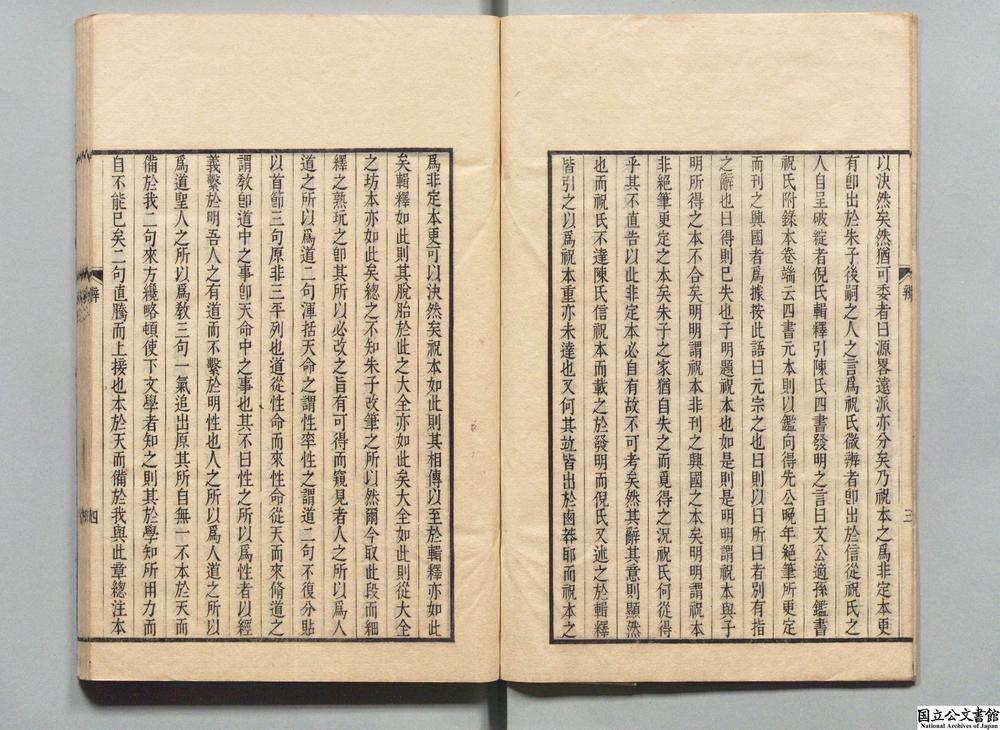 以決然矣然猶可委者曰源畧遠派亦分矣乃祝本之爲非定本更
有卽出於朱子後嗣之人之言爲祝氏微辨者卽出於信從祝氏之
人自呈破綻者倪氏輯釋引陳氏四書發明之言曰文公適孫鑑書
祝氏附錄本卷端云四書元本則以鑑向得先公晚年絕筆所更定
而刊之興國者爲據按此語曰元宗之也曰則以曰所曰者別有指
之辭也曰得則已失也子明題祝本也如是則是明明謂祝本與子
明所得之本不合矣明明謂祝本非刊之興國之本矣明明謂祝本
非絕筆更定之本矣朱子之家猶自失之而覓得之況祝氏何從得
乎其不直告以此非定本必自有故不可考矣然其辭其意則顯然
也而祝氏不達陳氏信祝本而載之於發明而倪氏又述之於輯釋
皆引之以爲祝本重亦未達也又何其竝皆出於鹵莽耶而祝本之
三
爲非定本更可以決然矣祝本如此則其相傳以至於輯釋亦如此
矣輯釋如此則其脫胎於此之大全亦如此矣大全如此則從大全
之坊本亦如此矣總之不知朱子改筆之所以然爾今取此段而細
釋之熟玩之卽其所以必改之旨有可得而窺見者人之所以爲人
道之所以爲道二句渾括天命之謂性率性之謂道二句不復分貼
以首節三句原非三平列也道從性命而來性命從天而來脩道之
謂敎卽道中之事卽天命中之事也其不曰性之所以爲性者以經
義繫於明吾人之有道而不繫於明性也人之所以爲人道之所以
爲道聖人之所以爲敎三句一氣追出原其所自無一不本於天而
備於我二句來方纔略頓使下文學者知之則其於學知所用力而
自不能已矣二句直騰而上接也本於天而備於我與此章總注本
辨
四